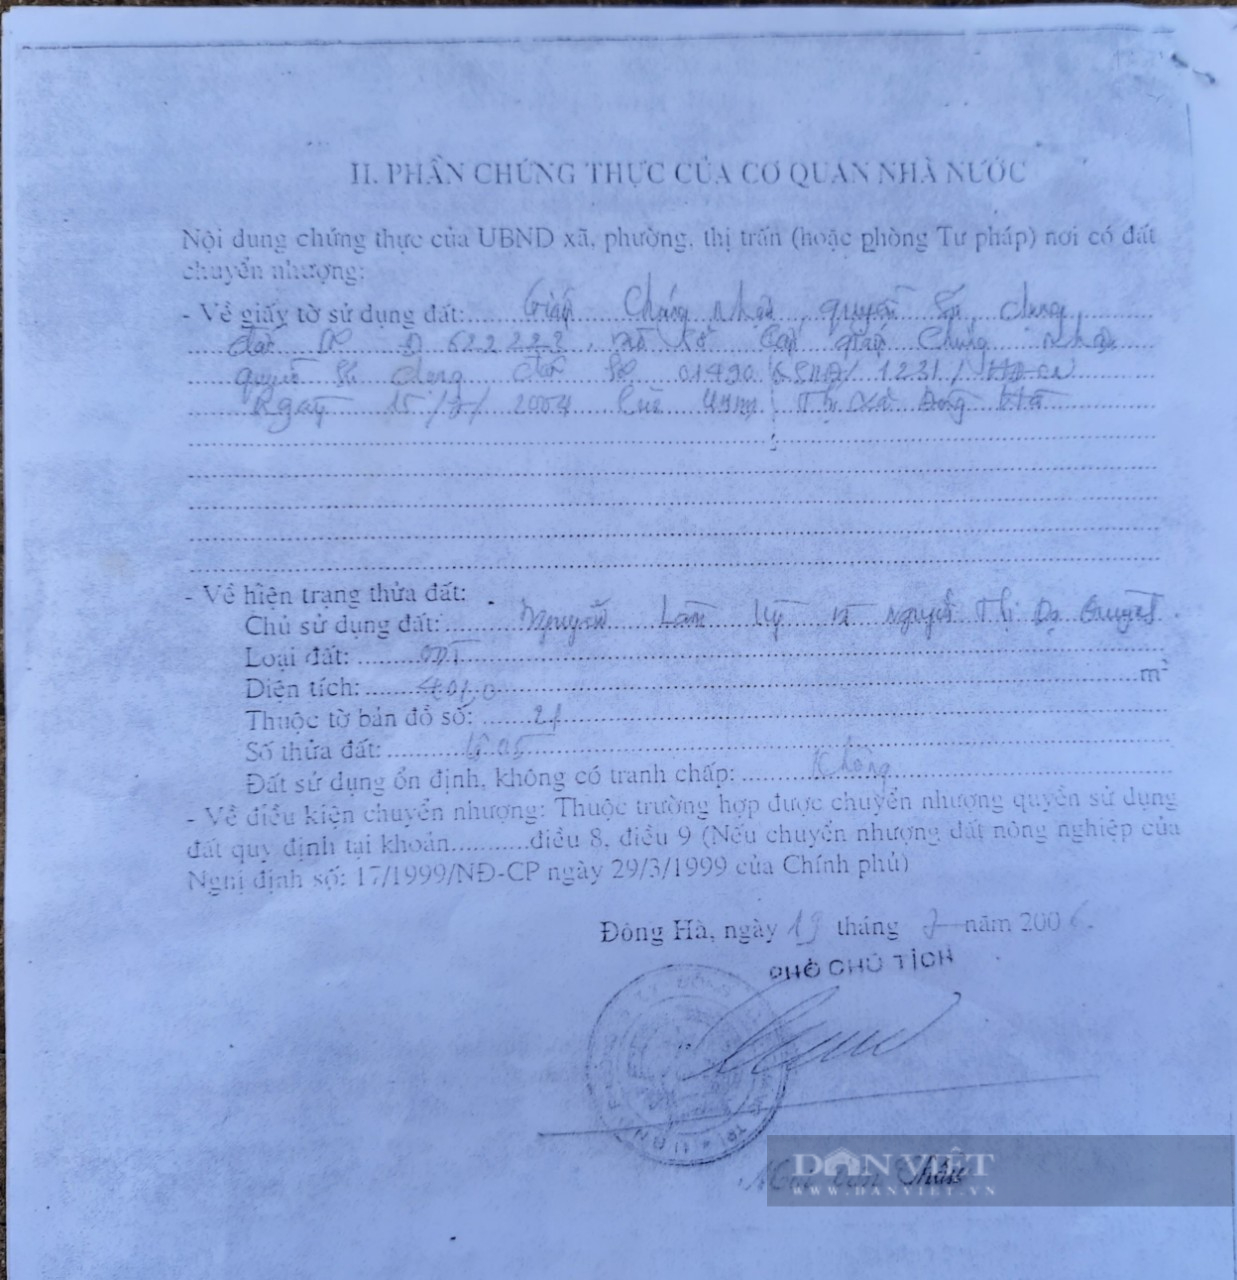 II. PHẦN CHỨNG THỰC CỦA CƠ QUAN NHÀ NƯỚC
Nội dung chứng thực của UBND xã, phường, thị trấn (hoặc phòng Tư pháp) nơi có đất
chuyển nhượng:
- Về giấy tờ sử dụng đất: Giấy Chứng nhận quyền sử dụng
đất số 622222, cấp giấy chứng nhận
quyền sử dụng đất số 01490 QSDĐ/1231/
Ngày 15/7/2004 của UBND Thị xã Đông Hà
- Về hiện trạng thửa đất:
Chủ sử dụng đất: Nguyễn Lân Kỷ và Nguyễn Thị Dạ
Loại đất: ODT
Diện tích: 401,0 m²
Thuộc tờ bản đồ số: 21
Số thửa đất:
Đất sử dụng ổn định, không có tranh chấp: Không
- Về điều kiện chuyển nhượng: Thuộc trường hợp được chuyển nhượng quyền sử dụng
đất quy định tại khoản...........điều 8, điều 9 (Nếu chuyển nhượng đất nông nghiệp của
Nghị định số: 17/1999/NĐ-CP ngày 29/3/1999 của Chính phủ)
Đông Hà, ngày 19 tháng 7 năm 2006
PHÓ CHỦ TỊCH
DÂN VIỆT
WWW.DANVIET.VN